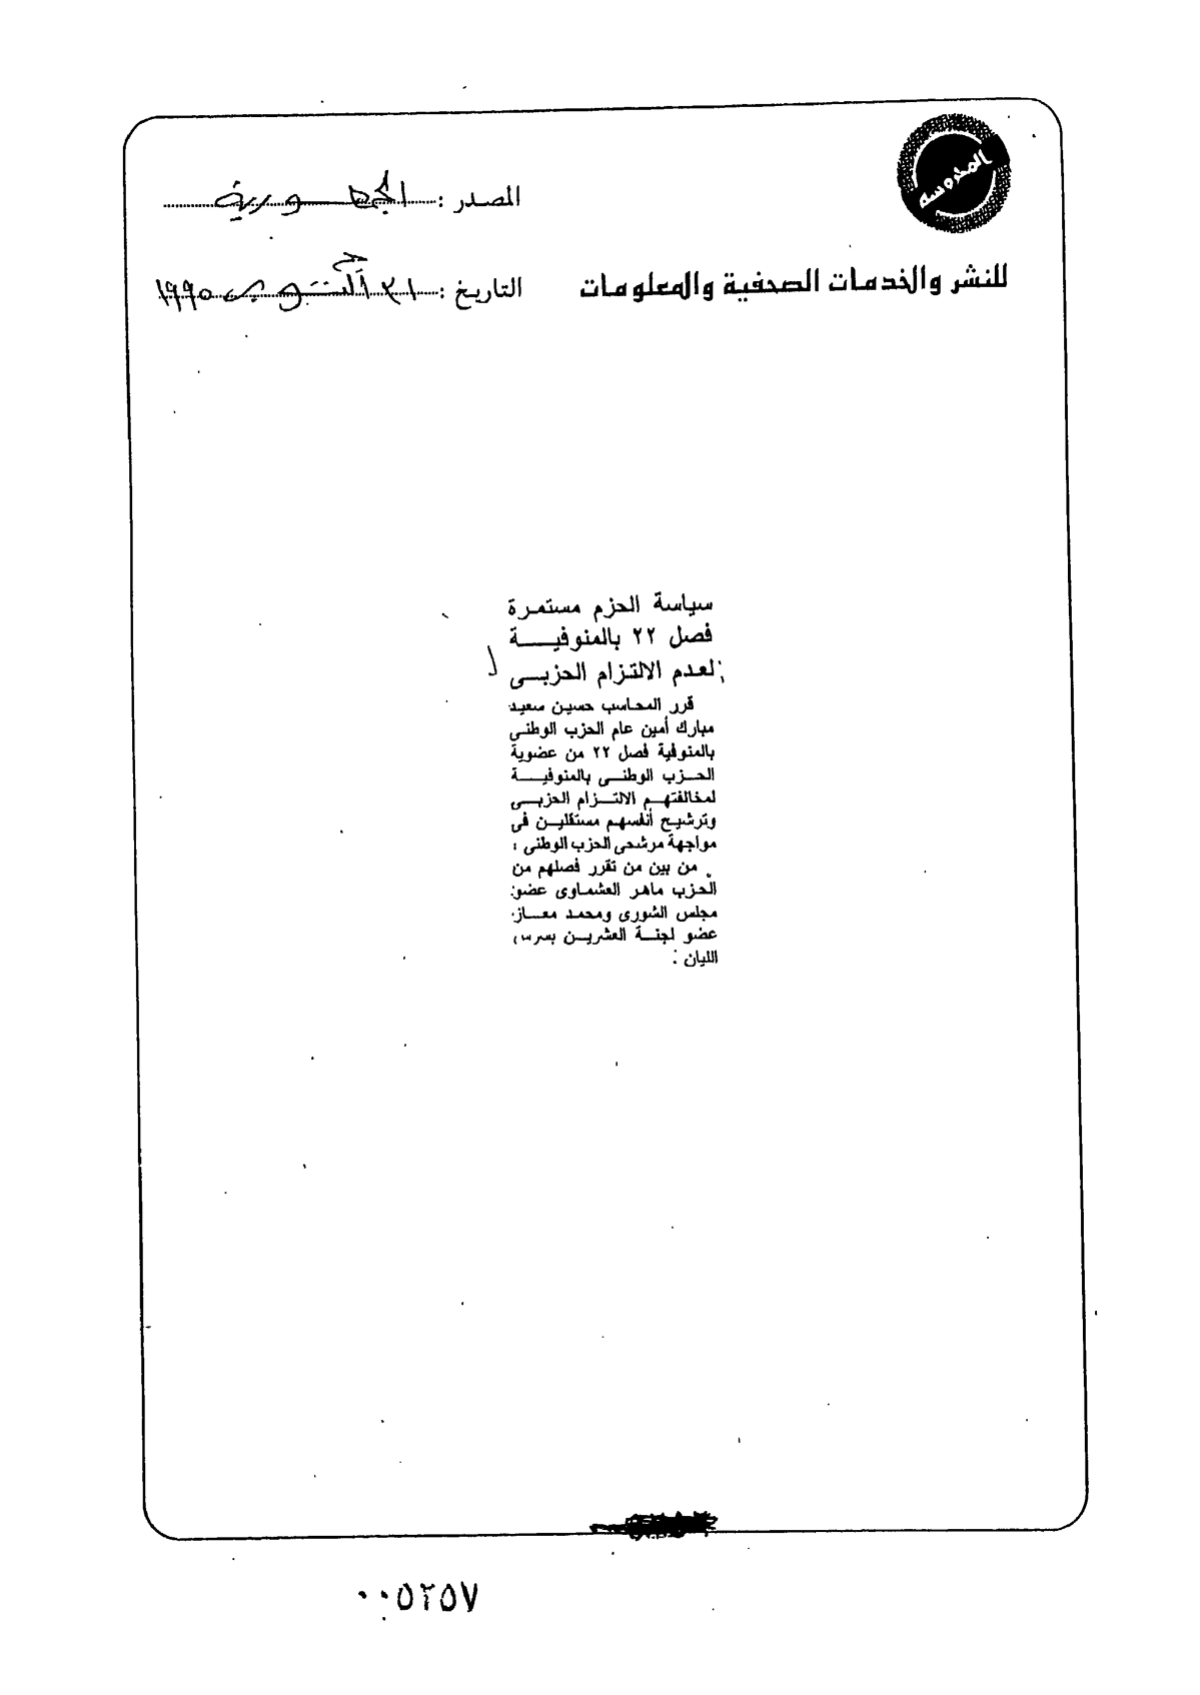 المحروسة
المصدر : الجمهورية
للنشر والخدمات الصحفية والمعلومات
التاريخ : ٣١ أكتوبر ١٩٩٥
سياسة الحزم مستمرة
فصل ٢٢ بالمنوفيـــة
لعدم الالتزام الحزبــى
قرر المحاسب حسين سعيد
مبارك أمين عام الحزب الوطنى
بالمنوفية فصل ٢٢ من عضوية
الحــزب الوطنــى بالمنوفيــة
لمخالفتهــم الالتــزام الحزبــى
وترشيح أنفسهم مستقليـن فى
مواجهة مرشحى الحزب الوطنى .
من بين من تقرر فصلهم من
الحزب ماهر العشماوى عضو
مجلس الشورى ومحمد معــاز
عضو لجنــة العشريــن بسرس
الليان .
٠٠٥٢٥٧